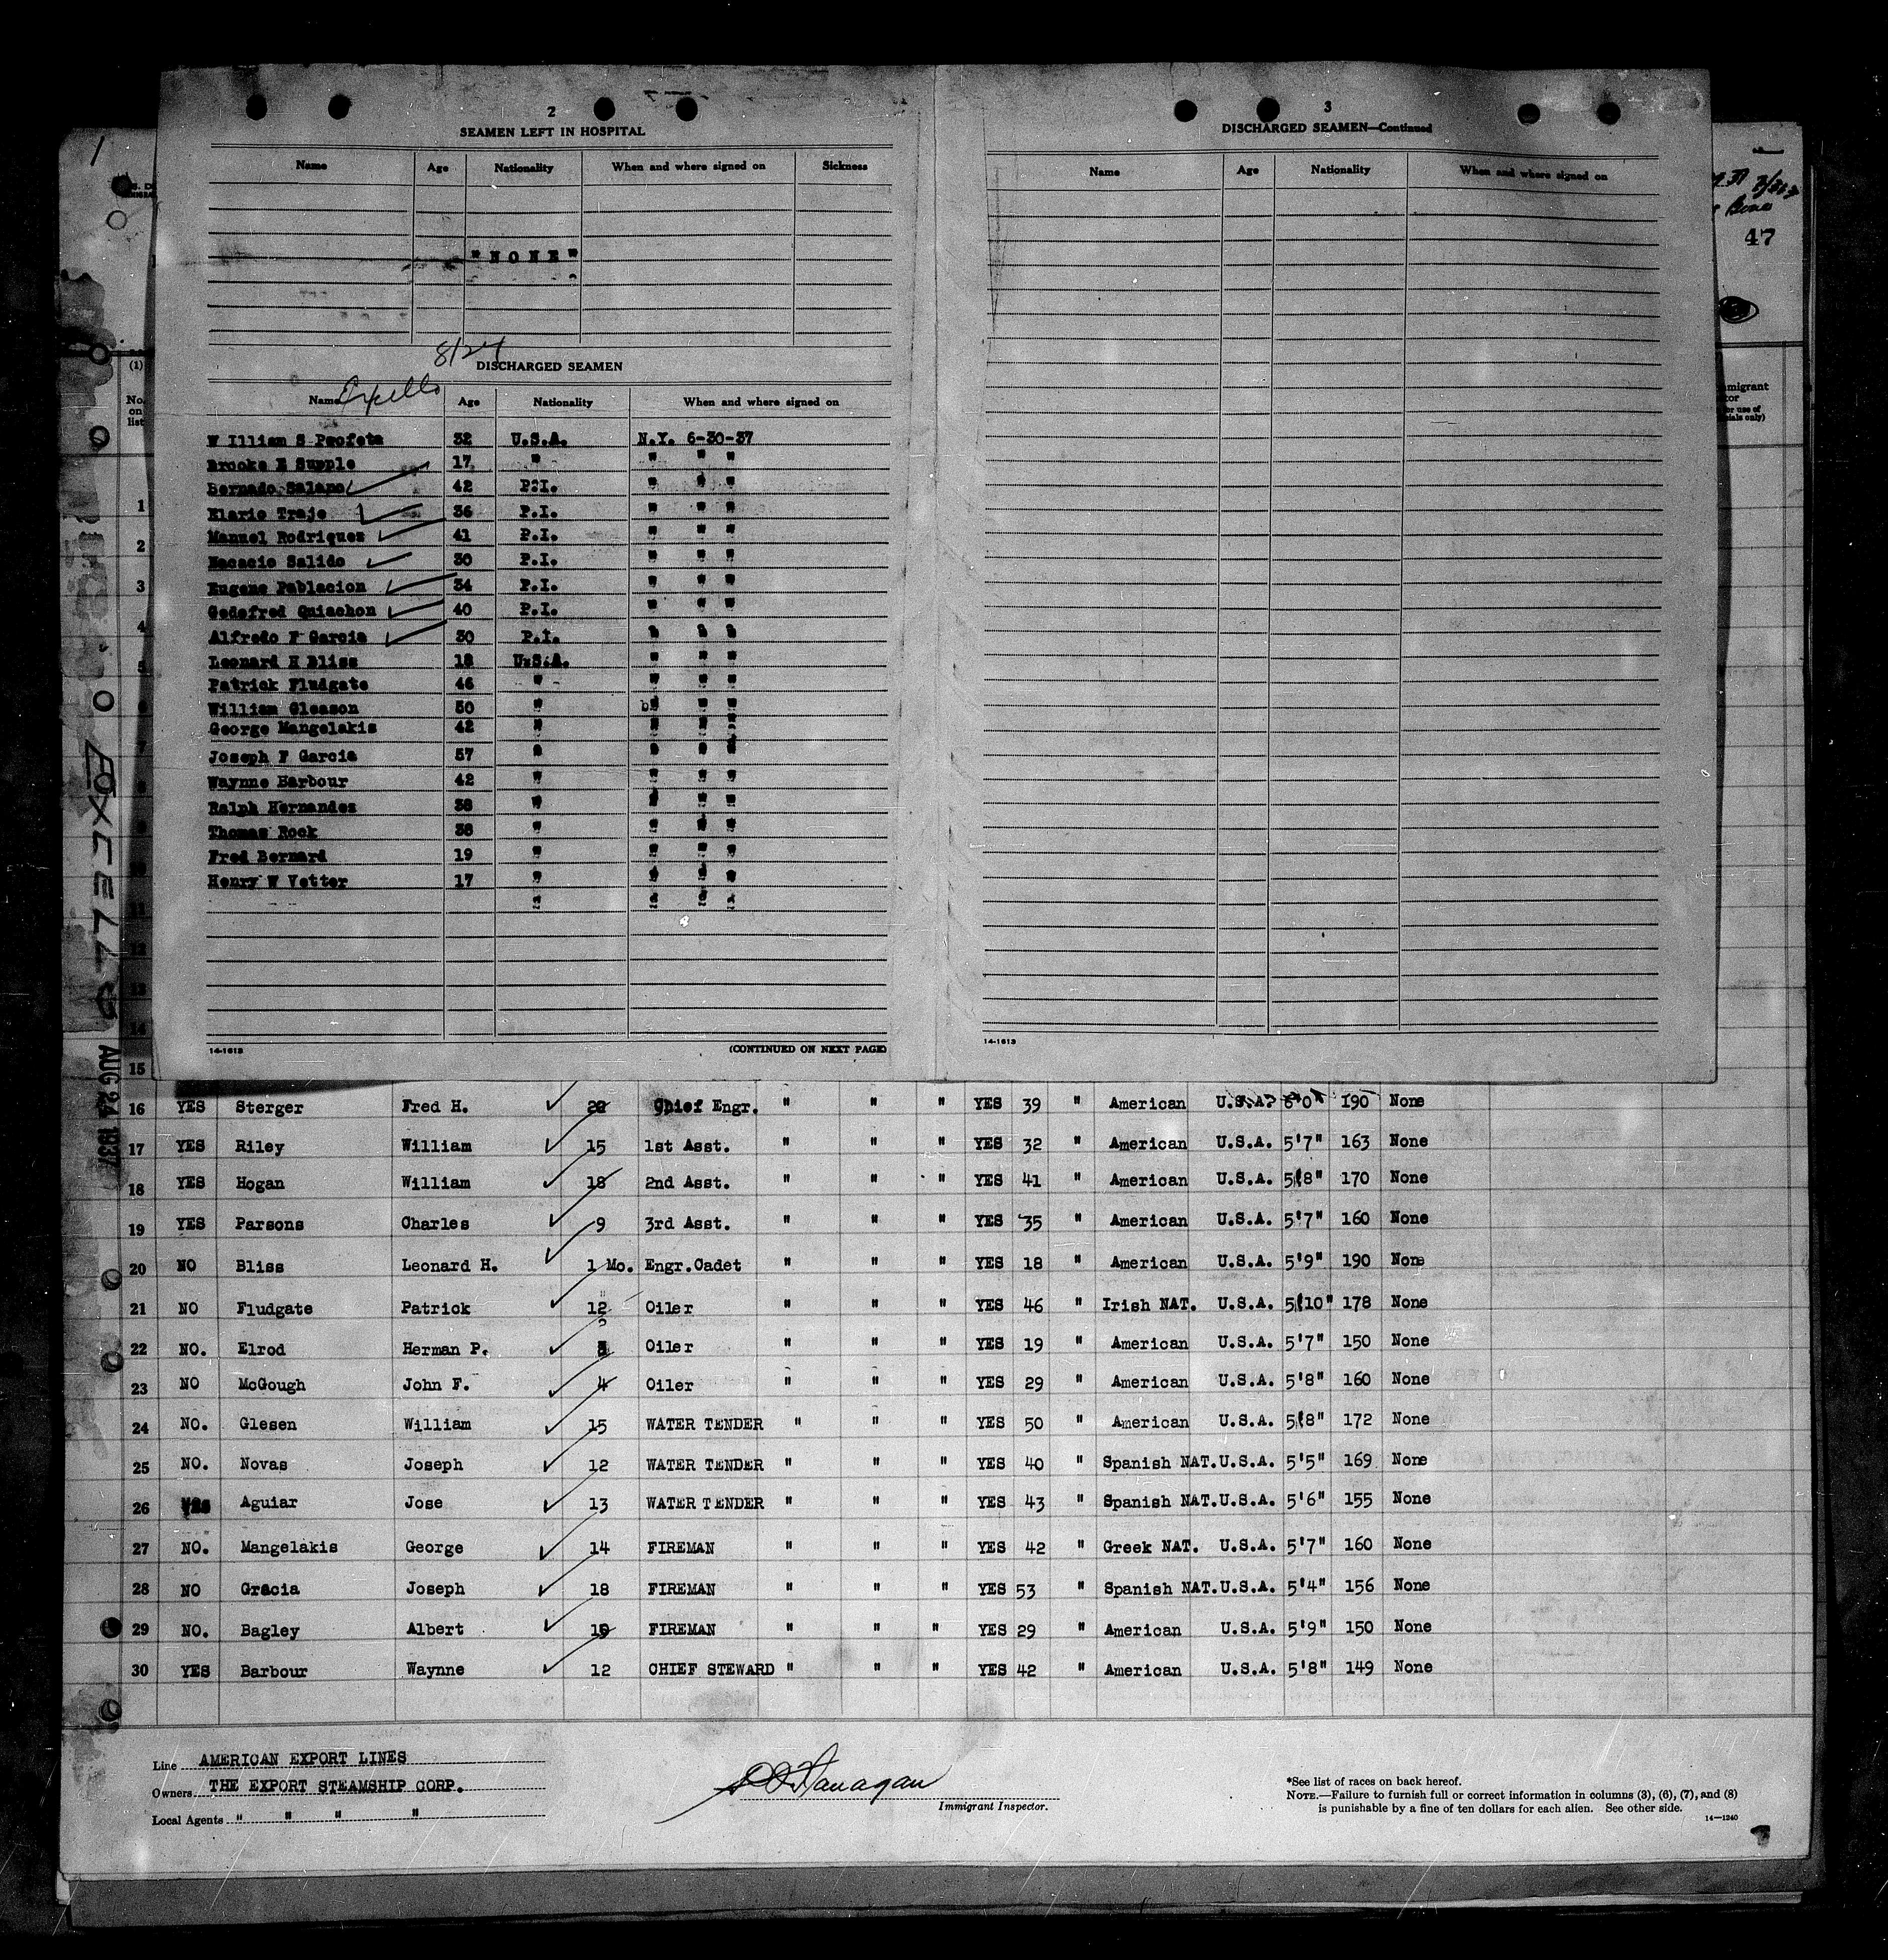 2
SEAMEN LEFT IN HOSPITAL
Name Age Nationality When and where signed on Sickness
"NONE"
8/24
DISCHARGED SEAMEN
Name Age Nationality When and where signed on
W Illiam S Profeta 32 U.S.A. N.Y. 6-30-37
Brooke E Supple 17 " " " "
Bernado Salano 42 P.I. " " "
Elario Trajo 36 P.I. " " "
Manuel Rodriquez 41 P.I. " " "
Macacio Salido 30 P.I. " " "
Eugene Pablacion 34 P.I. " " "
Godofred Quiachon 40 P.I. " " "
Alfredo F Garcia 30 P.I. " " "
Leonard H Bliss 18 U.S.A. " " "
Patrick Fludgate 46 " " " "
William Gleason 50 " " " "
George Mangelakis 42 " " " "
Joseph F Garcia 57 " " " "
Waynne Barbour 42 " " " "
Ralph Hernandez 38 " " " "
Thomas Rock 38 " " " "
Fred Bernard 19 " " " "
Henry W Vetter 17 " " " "
" " " "
14-1613 (CONTINUED ON NEXT PAGE)
3
DISCHARGED SEAMEN—Continued
Name Age Nationality When and where signed on
14-1613
1
47
(1)
No. on list
1
2
3
4
5
6
7
8
9
10
11
12
13
14
15
EXCELLO
AUG 24 1937
16 YES Sterger Fred H. 20 Chief Engr. " " " YES 39 " American U.S.A. 6'0" 190 None
17 YES Riley William 15 1st Asst. " " " YES 32 " American U.S.A. 5'7" 163 None
18 YES Hogan William 18 2nd Asst. " " " YES 41 " American U.S.A. 5'8" 170 None
19 YES Parsons Charles 9 3rd Asst. " " " YES 35 " American U.S.A. 5'7" 160 None
20 NO Bliss Leonard H. 1 Mo. Engr.Cadet " " " YES 18 " American U.S.A. 5'9" 190 None
21 NO Fludgate Patrick 12 Oiler " " " YES 46 " Irish NAT. U.S.A. 5'10" 178 None
22 NO. Elrod Herman P. Oiler " " " YES 19 " American U.S.A. 5'7" 150 None
23 NO McGough John F. 4 Oiler " " " YES 29 " American U.S.A. 5'8" 160 None
24 NO. Glesen William 15 WATER TENDER " " " YES 50 " American U.S.A. 5'8" 172 None
25 NO. Novas Joseph 12 WATER TENDER " " " YES 40 " Spanish NAT. U.S.A. 5'5" 169 None
26 YES Aguiar Jose 13 WATER TENDER " " " YES 43 " Spanish NAT. U.S.A. 5'6" 155 None
27 NO. Mangelakis George 14 FIREMAN " " " YES 42 " Greek NAT. U.S.A. 5'7" 160 None
28 NO Gracia Joseph 18 FIREMAN " " " YES 53 " Spanish NAT. U.S.A. 5'4" 156 None
29 NO. Bagley Albert 19 FIREMAN " " " YES 29 " American U.S.A. 5'9" 150 None
30 YES Barbour Waynne 12 CHIEF STEWARD " " " YES 42 " American U.S.A. 5'8" 149 None
Line AMERICAN EXPORT LINES
Owners THE EXPORT STEAMSHIP CORP.
Local Agents " " " "
Flanagan
Immigrant Inspector.
*See list of races on back hereof.
NOTE.—Failure to furnish full or correct information in columns (3), (6), (7), and (8)
is punishable by a fine of ten dollars for each alien. See other side.
14—1240